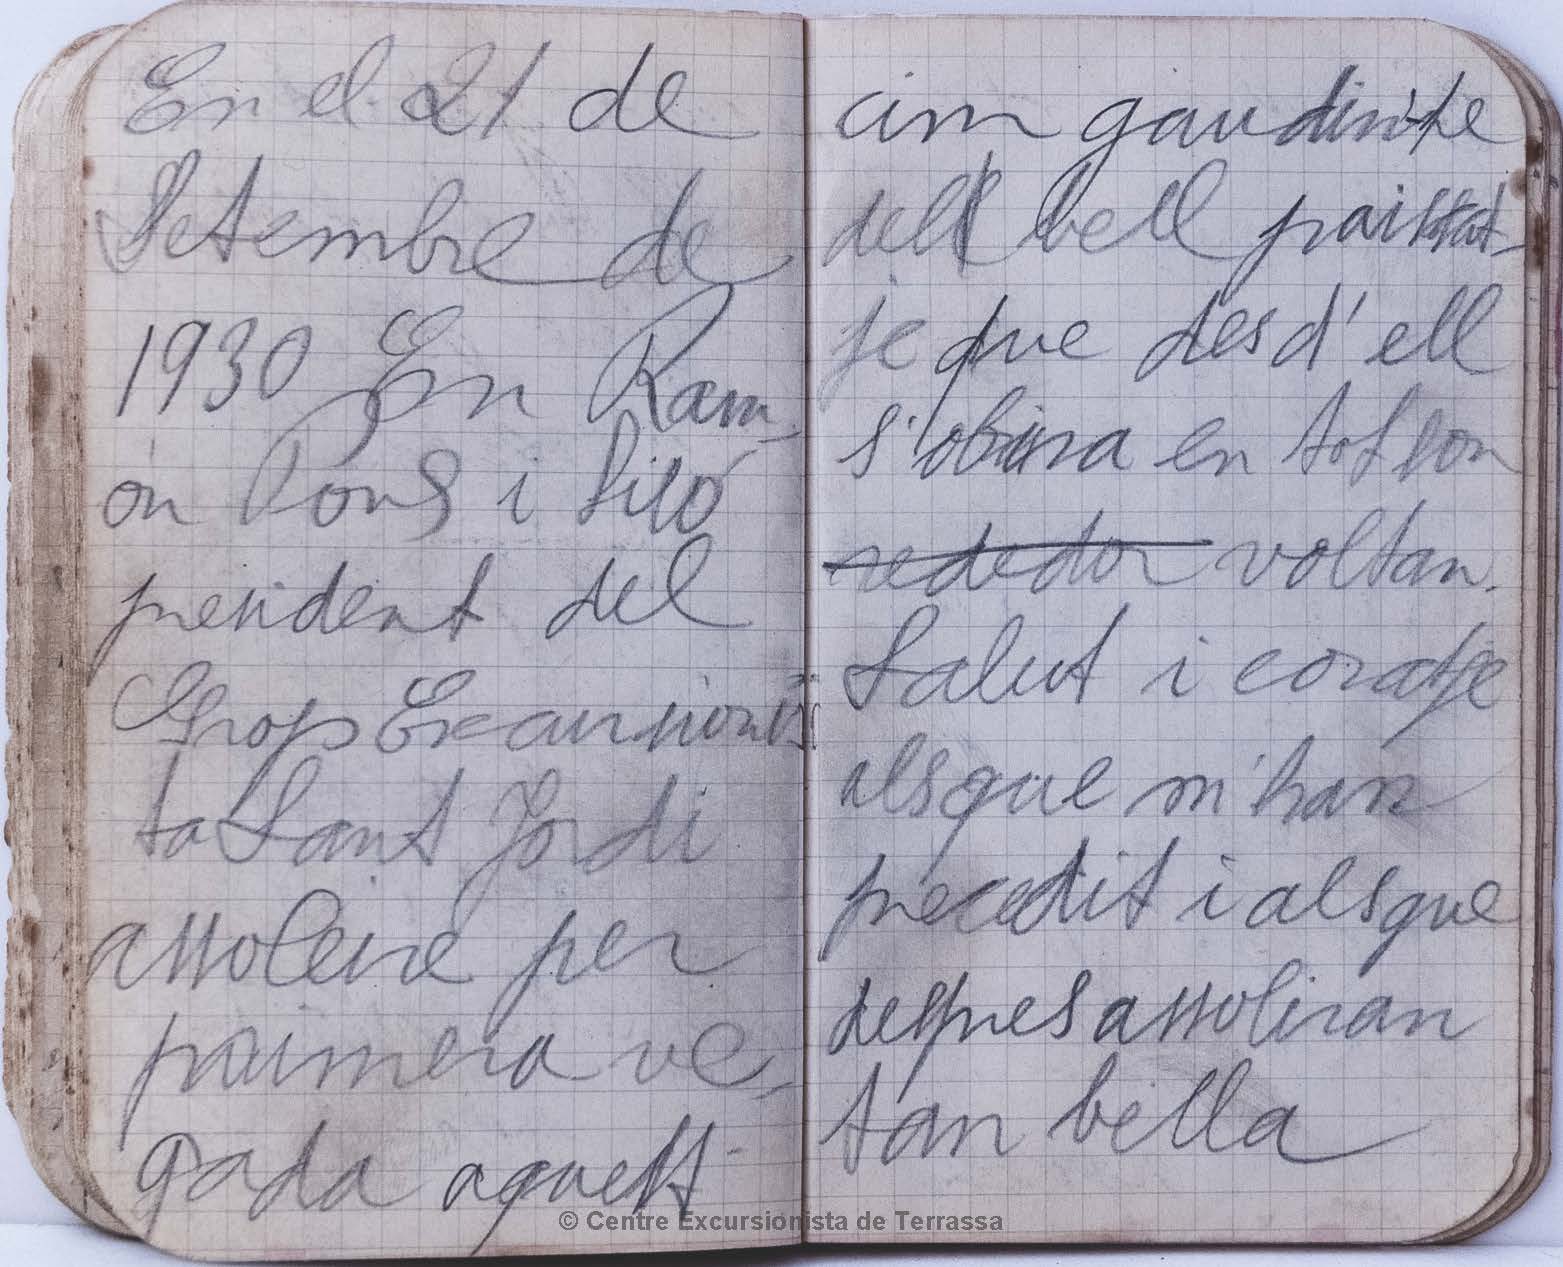 En el 21 de
Setembre de
1930 En Ram-
on Pons i Siló
president del
Grop Excursionis
ta Sant Jordi
assoleixe per
primera ve-
gada aquest
cim gaudin't-e
dell bell paissat-
je que des d'ell
s'obira en tot son
rededor voltan.
Salut i coratje
als que m'han
precedit i als que
despres assoliran
tan bella
© Centre Excursionista de Terrassa